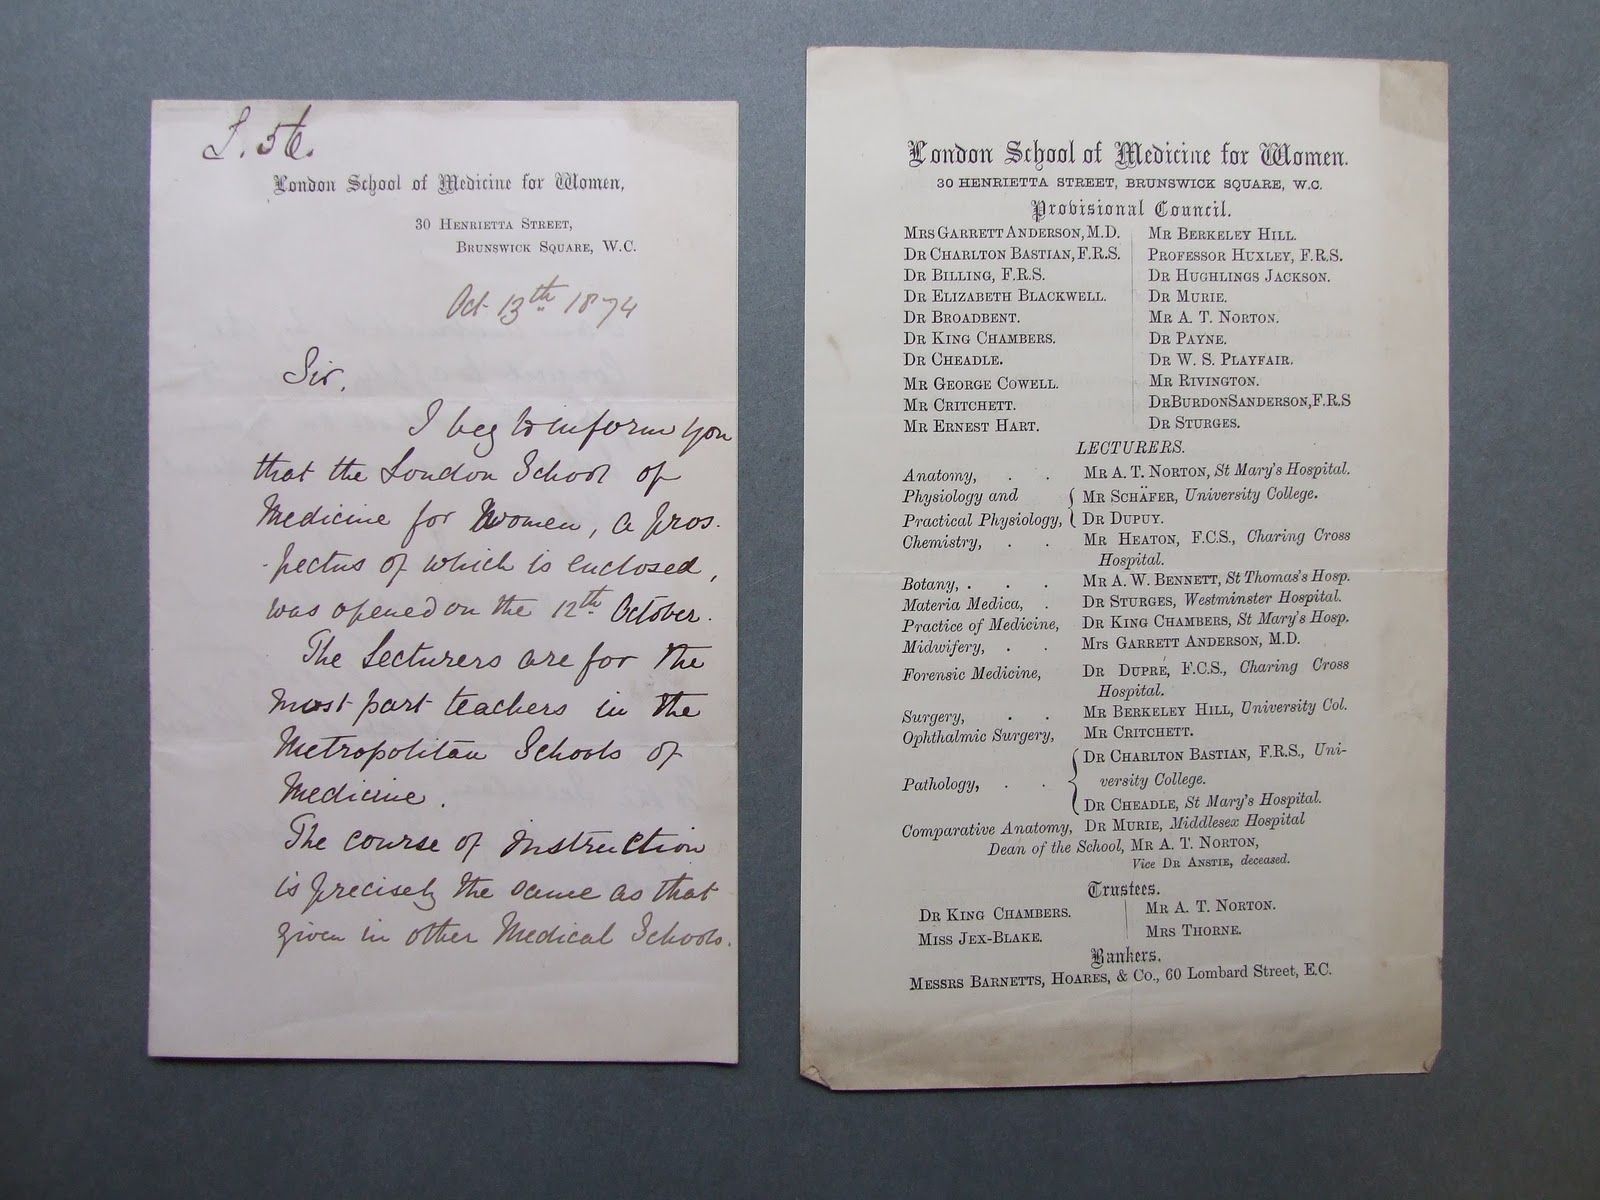 S. 56.
London School of Medicine for Women,
30 Henrietta Street,
Brunswick Square, W.C.
Oct 13th 1874
Sir,
I beg to inform you
that the London School of
Medicine for Women, a pros-
-pectus of which is enclosed,
was opened on the 12th October.
The Lecturers are for the
most part teachers in the
Metropolitan Schools of
Medicine.
The course of instruction
is precisely the same as that
given in other Medical Schools.
London School of Medicine for Women.
30 HENRIETTA STREET, BRUNSWICK SQUARE, W.C.
Provisional Council.
Mrs Garrett Anderson, M.D.
Dr Charlton Bastian, F.R.S.
Dr Billing, F.R.S.
Dr Elizabeth Blackwell.
Dr Broadbent.
Dr King Chambers.
Dr Cheadle.
Mr George Cowell.
Mr Critchett.
Mr Ernest Hart.
Mr Berkeley Hill.
Professor Huxley, F.R.S.
Dr Hughlings Jackson.
Dr Murie.
Mr A. T. Norton.
Dr Payne.
Dr W. S. Playfair.
Mr Rivington.
Dr Burdon Sanderson, F.R.S
Dr Sturges.
LECTURERS.
Anatomy, . . Mr A. T. Norton, St Mary's Hospital.
Physiology and { Mr Schäfer, University College.
Practical Physiology, { Dr Dupuy.
Chemistry, . . Mr Heaton, F.C.S., Charing Cross
Hospital.
Botany, . . . Mr A. W. Bennett, St Thomas's Hosp.
Materia Medica, . Dr Sturges, Westminster Hospital.
Practice of Medicine, Dr King Chambers, St Mary's Hosp.
Midwifery, . . Mrs Garrett Anderson, M.D.
Forensic Medicine, Dr Dupré, F.C.S., Charing Cross
Hospital.
Surgery, . . Mr Berkeley Hill, University Col.
Ophthalmic Surgery, Mr Critchett.
Dr Charlton Bastian, F.R.S., Uni-
Pathology, . . { versity College.
Dr Cheadle, St Mary's Hospital.
Comparative Anatomy, Dr Murie, Middlesex Hospital
Dean of the School, Mr A. T. Norton,
Vice Dr Anstie, deceased.
Trustees.
Dr King Chambers.
Miss Jex-Blake.
Mr A. T. Norton.
Mrs Thorne.
Bankers.
Messrs Barnetts, Hoares, & Co., 60 Lombard Street, E.C.